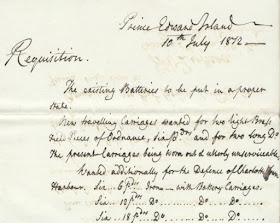 Prince Edward Island
10th July 1812.
Requisition.
The existing Batteries to be put in a proper
state.
New travelling Carriages wanted for two light Brass
Field Pieces of Ordnance, Six pdrs and for two long Do
The present Carriages being worn out & utterly unserviceable.
Wanted additionally for the Defence of Charlotte Town
Harbour. Six 6 pdrs Iron — with Battery Carriages.
Six 12 pdrs Do Do Do
Six 18 pdrs Do Do Do